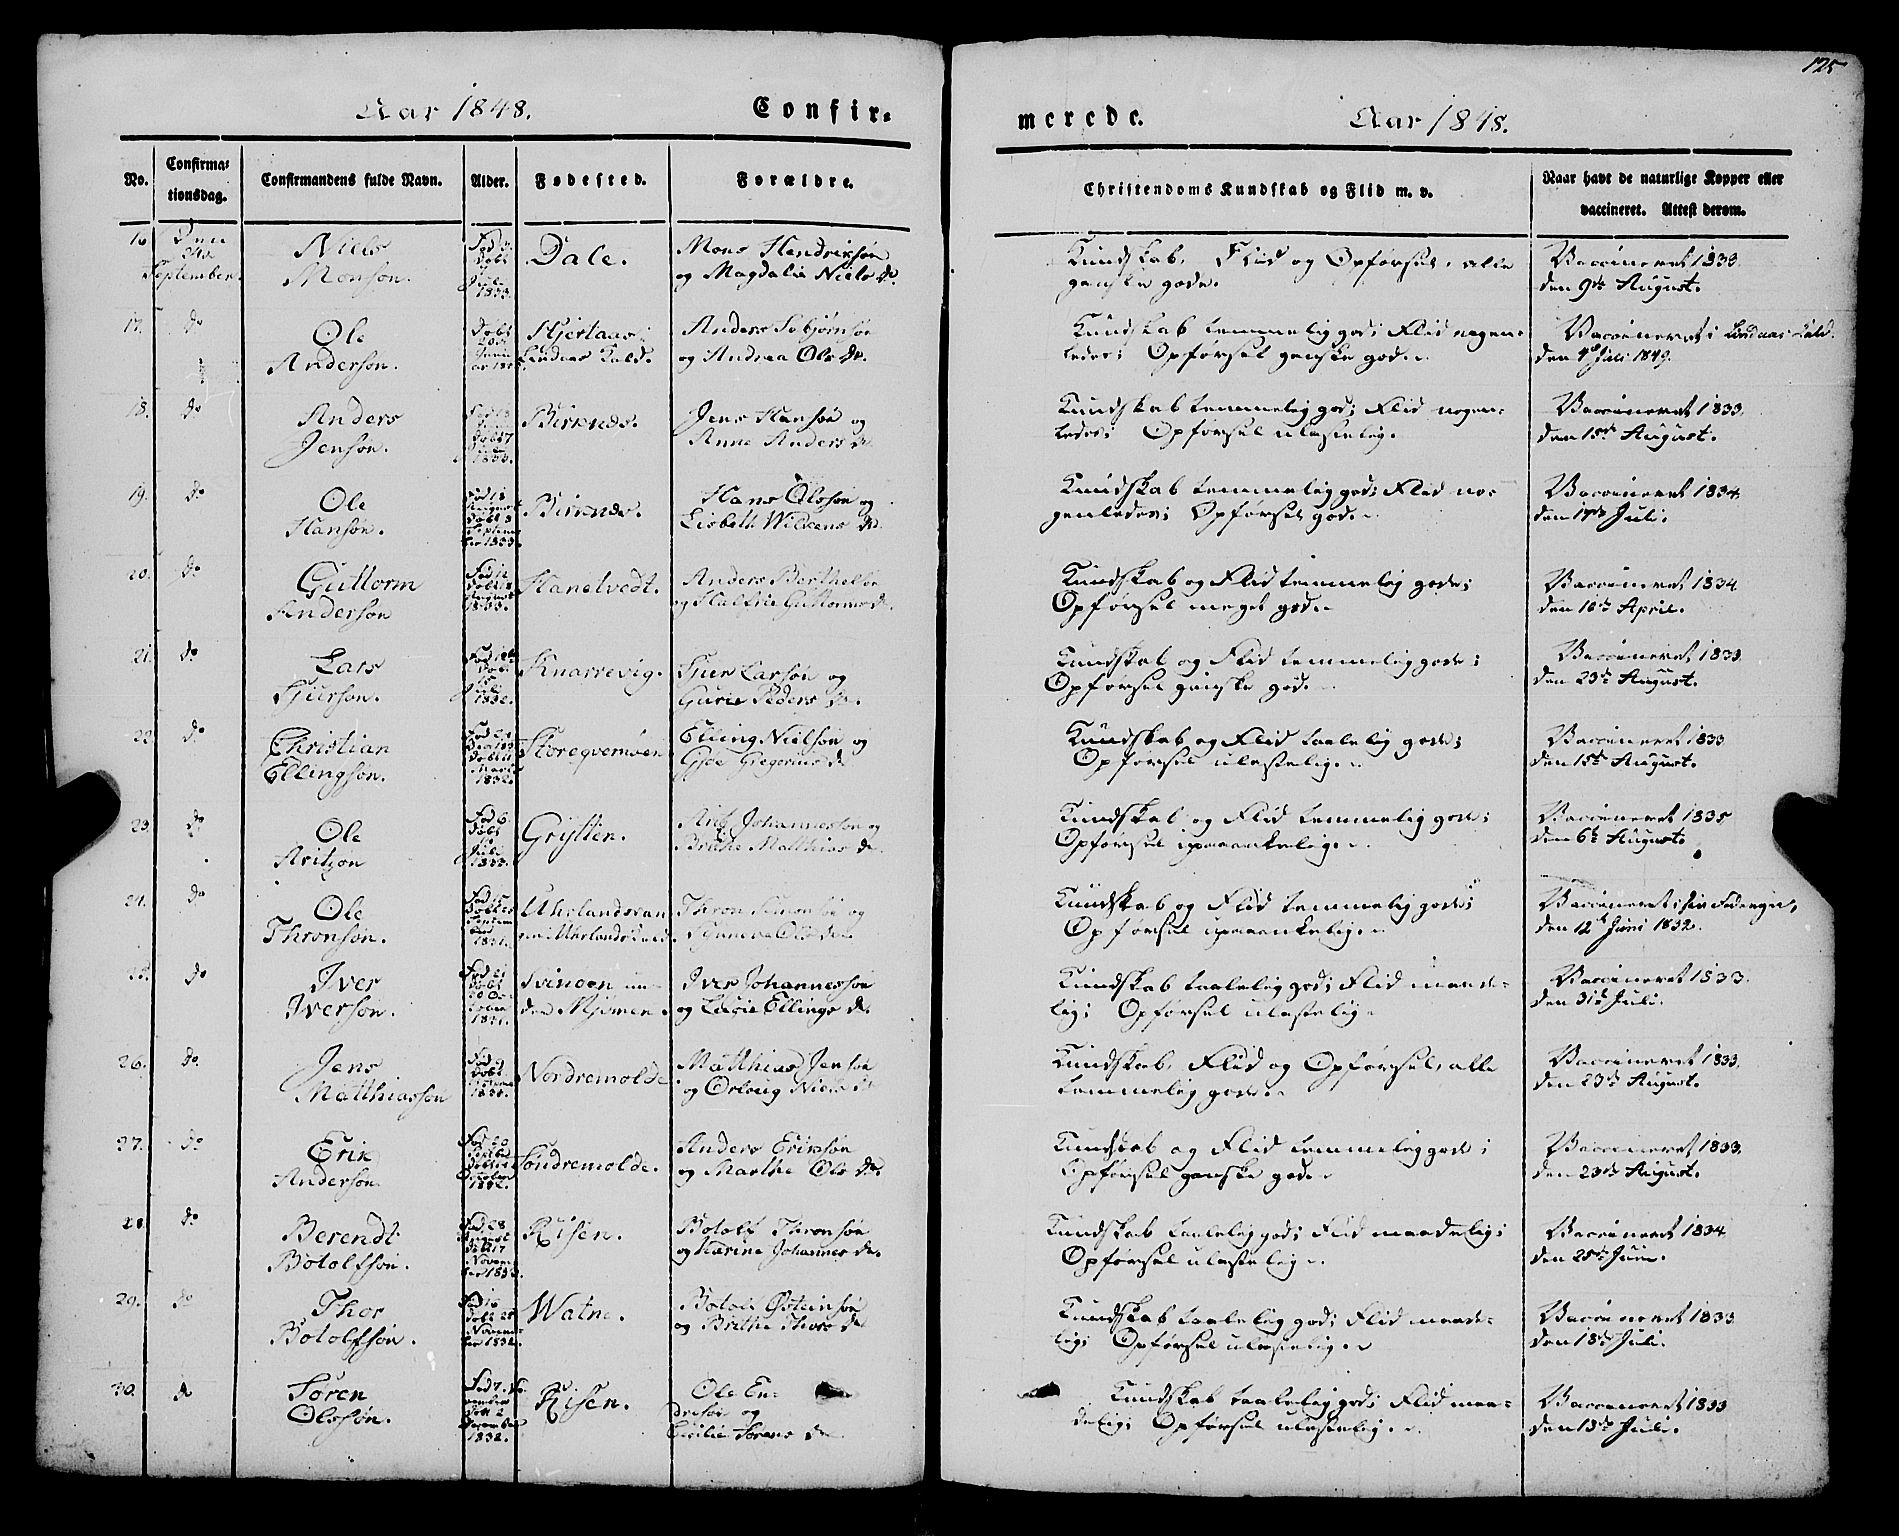 125
Aar 1848. Confir-
merede. Aar 1848.
No. Confirma-tionsdag. Confirmandens fulde Navn. Alder. Fødested. Forældre. Christendoms Kundskab og Flid m. v. Naar havt de naturlige Kopper eller vaccineret. Attest derom.
16 Den 24de September. Niels Monsøn. Fød 3. Døbt Juli 1833. Dale. Mons Hendriksøn og Magdalia Niels Dr. Kundskab, Flid og Opførsel, alle ganske gode. Vaccineret 1833. den 9de August.
17. Do Ole Andersøn. Døbt Hjertaas; Lindaas Kald. Anders Sebjørnsøn og Andrea Ols Dr. Kundskab temmelig god; Flid nogen-ledes; Opførsel ganske god. Vaccineret i Lindaas Kald. den 4de Juli 1849.
18. Do Anders Jensøn. Fød 18 Døbt 7 1833. Birknes. Jens Hansøn og Anne Anders Dr. Kundskab temmelig god; Flid nogen-ledes; Opførsel ulastelig. Vaccineret 1833. den 15de August.
19. Do Ole Hansøn. Fød 18 August Døbt 8 September 1833. Birknes. Hans Olsøn og Lisbeth Wilkens Dr. Kundskab temmelig god; Flid no-genledes; Opførsel god. Vaccineret 1834. den 17de Juli.
20. Do Guttorm Andersøn Fød 12 Døbt 18 August 1833. Hanetvedt. Anders Berthelsø og Halfrie Guttorms Dr. Kundskab og Flid temmelig gode; Opførsel meget god. Vaccineret 1834. den 16de April.
21. Do Lars Sjursøn. Døbt 15 Juli 1832. Knarrevig. Sjur Larsøn og Gurie Peders Dr. Kundskab og Flid temmelig gode; Opførsel ganske god. Vaccineret 1833. den 23de August.
22. Do Christian Ellingsøn. Marts 1832. Storeqvernøen Elling Nielsøn og Gjøe Gregorius Dr Kundskab og Flid taalelig gode; Opførsel ulastelig. Vaccineret 1833. den 15de August.
23. Do Ole Aritzøn Fød 6 Døbt Juli 1833. Grytten. Johannessøn og Brithe Matthias Dr. Kundskab og Flid temmelig gode; Opførsel upaaankelig. Vaccineret 1835 den 6te August.
24. Do Ole Thronsøn. Fød 15 Døbt 25 1831. Uhrlands Thron Simonsø og Synneva Ols Dr. Kundskab og Flid temmelig gode; Opførsel upaaankelig. Vaccineret den 12te Juni 1832.
25. Do Iver Iversøn. Fød 21 Døbt 30 October 1831. Svinøen un-der Mjømen. Iver Johannessøn og Lucie Ellings Dr. Kundskab taalelig god; Flid maade-lig; Opførsel ulastelig. Vaccineret 1833. den 31te Juli.
26. Do Jens Matthiassøn Fød 9 Døbt 1833. Nordremolde Matthias Jensø og Orloug Niels Dr Kundskab, Flid og Opførsel, alle temmelig gode. Vaccineret 1833. den 23de August.
27. Do Erik Andersøn Fød 20 Septbr Døbt October 1832. Søndremolde. Anders Eriksøn og Marthe Ols Dr. Kundskab og Flid temmelig gode; Opførsel ganske god. Vaccineret 1833. den 23de August.
28. Do Berendt Botolfsøn. Fød 28 August Døbt 17 November 1833. Risen. Botolf Thronsøn og Karine Johannes Dr. Kundskab taalelig god; Flid maadelig; Opførsel ulastelig. Vaccineret 1834 den 25de Juni.
29. Do Thor Botolfsøn. Fød 16 Døbt 25 November 1832. Watne. Botolf Østeinsø og Brithe Thors Dr Kundskab taalelig god; Flid maade-lig; Opførsel ulastelig. Vaccineret 1833 den 18de Juli.
30. Do Søren Olssøn. Fød 7 November Døbt 2 December 1832. Risen. Ole En-dresøn og Cicilie Sørens Dr. Kundskab taalelig god; Flid maa-delig; Opførsel ulastelig. Vaccineret 1833 den 13de Juli.